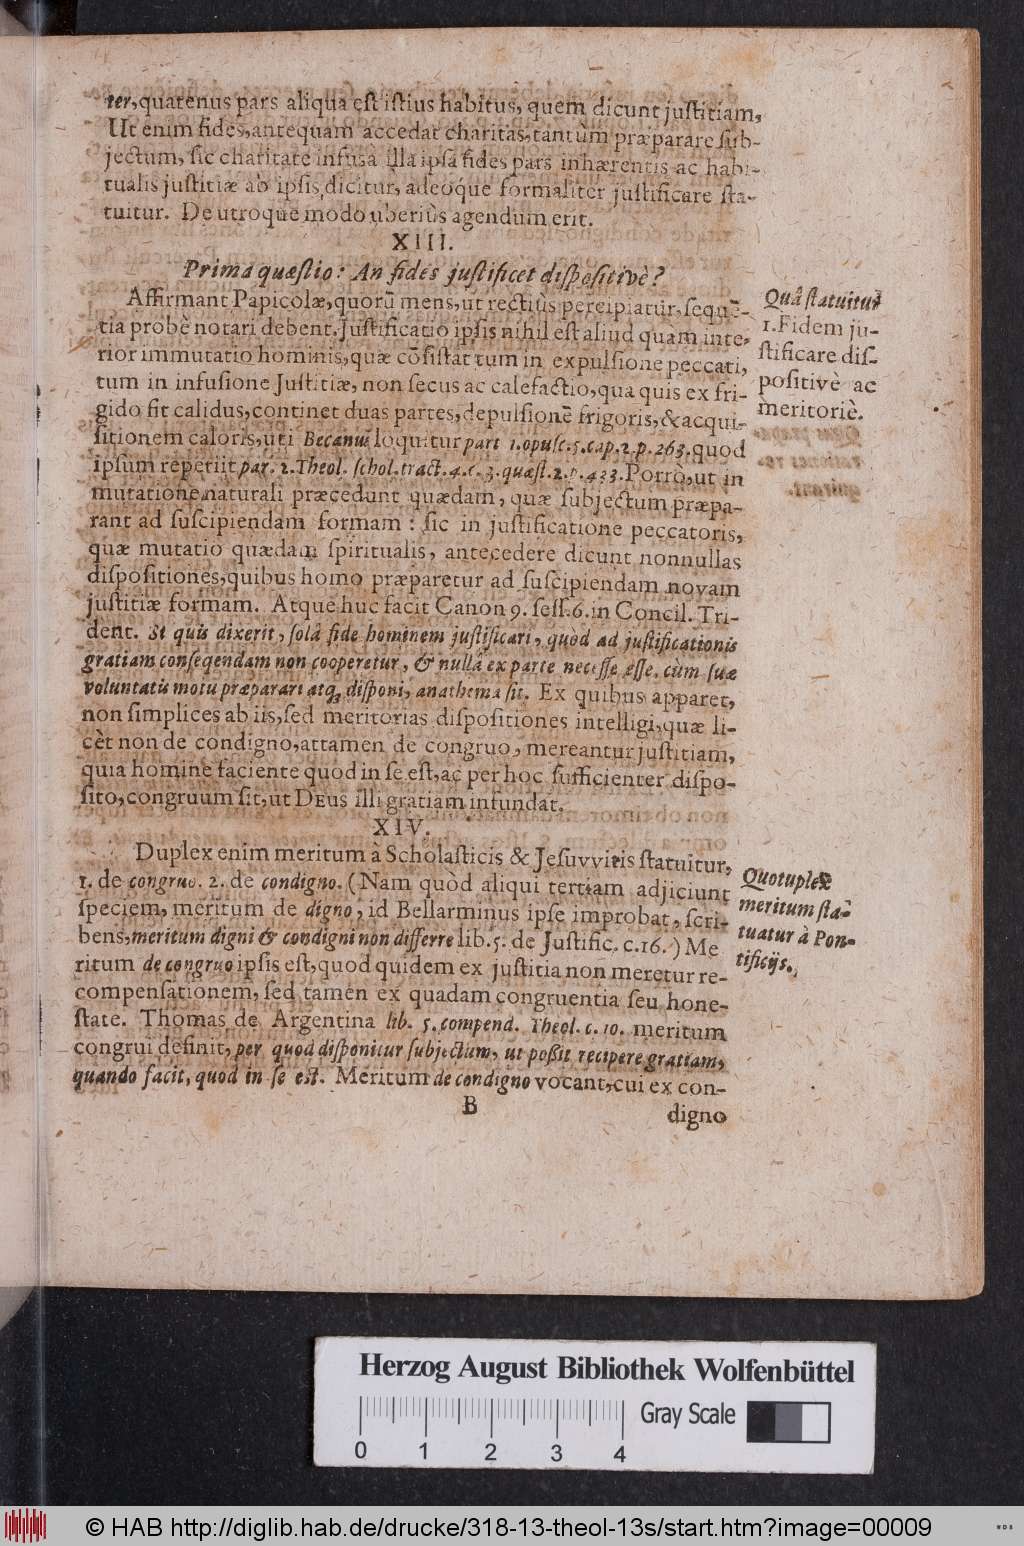 ter, quatenus pars aliqua est istius habitus, quem dicunt justitiam,
Ut enim fides, antequam accedat charitas, tantùm præparare sub-
jectum, sic charitate infusa illa ipsa fides pars inhærentis ac habi-
tualis justitiæ ab ipsis dicitur, adeóque formaliter justificare sta-
tuitur. De utroque modo uberiùs agendum erit.
XIII.
Prima quæstio: An fides justificet dispositivè?
Affirmant Papicolæ, quorũ mens, ut rectiùs percipiatur, sequẽ-
tia probè notari debent. Justificatio ipsis nihil est aliud quàm inte-
rior immutatio hominis, quæ cõsistat tum in expulsione peccati,
tum in infusione Justitiæ, non secus ac calefactio, qua quis ex fri-
gido fit calidus, continet duas partes, depulsionẽ frigoris, & acqui-
sitionem caloris, uti Becanus loquitur part 1. opusc. 5. cap. 2. p. 263. quod
ipsum reperiit par. 2. Theol. schol. tract. 4. c. 3. quæst. 2. p. 433. Porrò, ut in
mutatione naturali præcedunt quædam, quæ subjectum præpa-
rant ad suscipiendam formam: sic in justificatione peccatoris,
quæ mutatio quædam spiritualis, antecedere dicunt nonnullas
dispositiones, quibus homo præparetur ad suscipiendam novam
justitiæ formam. Atque huc facit Canon 9. sess. 6. in Concil. Tri-
dent. Si quis dixerit, solâ fide hominem justificari, quòd ad justificationis
gratiam conseqendam non cooperetur, & nullâ ex parte necesse esse, cùm suæ
voluntatis motu præparari atq; disponi, anathema sit. Ex quibus apparet,
non simplices ab iis, sed meritorias dispositiones intelligi, quæ li-
cèt non de condigno, attamen de congruo, mereantur justitiam,
quia homine faciente quod in se est, ac per hoc sufficienter dispo-
sito, congruum sit, ut DEus illi gratiam infundat.
XIV.
Duplex enim meritum à Scholasticis & Jesuvvitis statuitur,
1. de congruo. 2. de condigno. (Nam quòd aliqui tertiam adjiciunt
speciem, meritum de digno, id Bellarminus ipse improbat, scri-
bens, meritum digni & condigni non differre lib. 5. de Justific. c. 16.) Me
ritum de congruo ipsis est, quod quidem ex justitia non meretur re-
compensationem, sed tamen ex quadam congruentia seu hone-
state. Thomas de Argentina lib. 5. compend. Theol. c. 10. meritum
congrui definit, per quod disponitur subjectum, ut poßit recipere gratiam,
quando facit, quod in se est. Meritum de condigno vocant, cui ex con-
B
digno
Quâ statuitur
1. Fidem ju-
stificare dis-
positivè ac
meritoriè.
Quotuplex
meritum sta-
tuatur à Pon-
tificijs.
Herzog August Bibliothek Wolfenbüttel
Gray Scale
0 1 2 3 4
© HAB http://diglib.hab.de/drucke/318-13-theol-13s/start.htm?image=00009